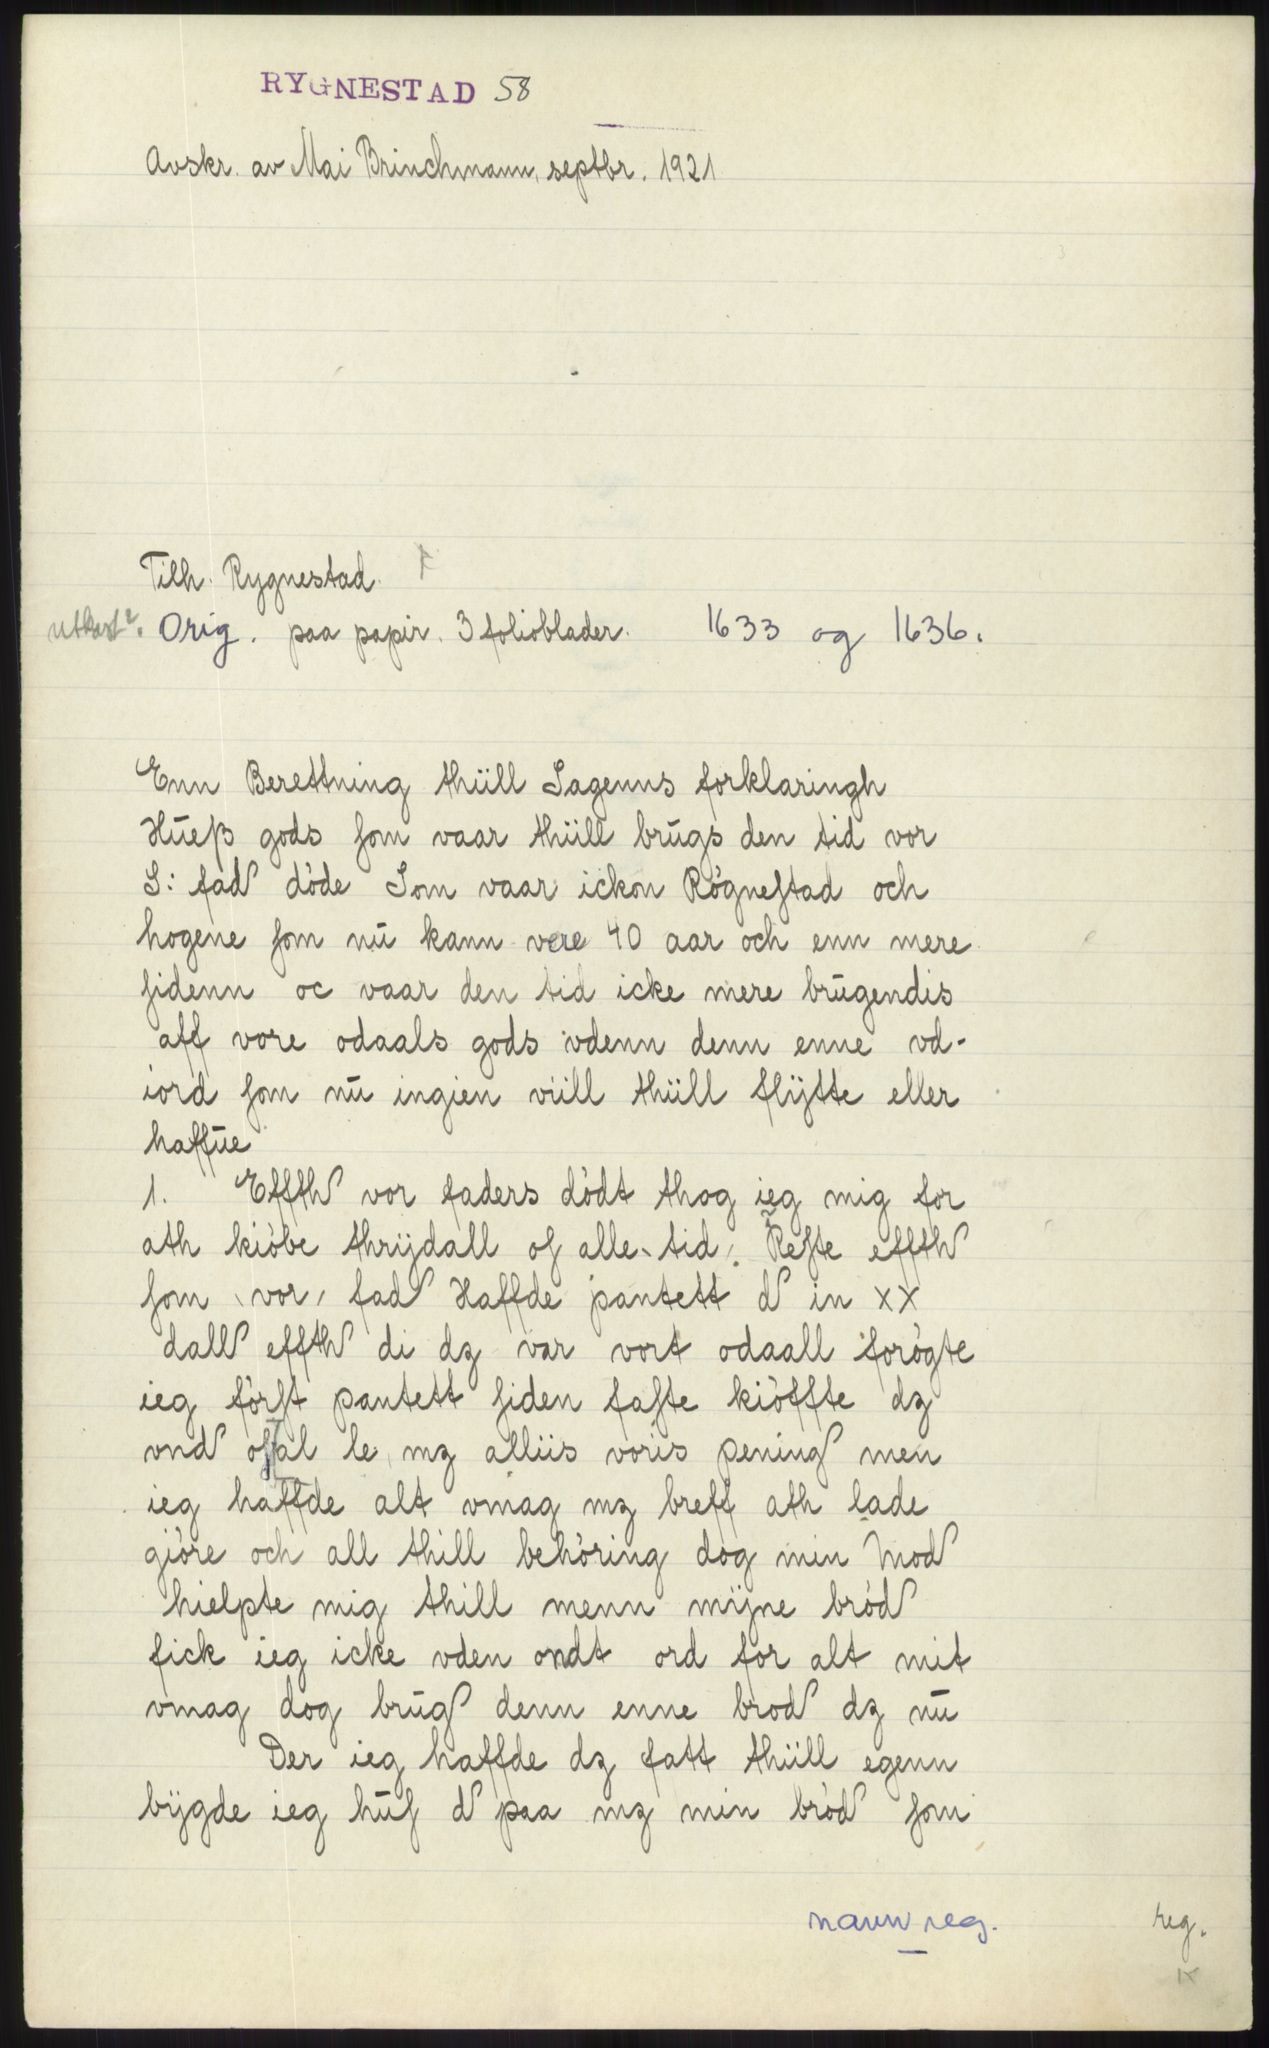 RYGNESTAD 58
Avskr. av Mai Brinchmann, septbr. 1921
Tilh. Rygnestad.
utkast? Orig. paa papir. 3 folioblader. 1633 og 1636.
Enn Berettning thüll Sagenns forklaringh
Hūeß gods som vaar thüll brūgs den tid vor
S: fad döde Som vaar ickon Rögnestad och
hogene som nū kann vere 40 aar och enn mere
sidenn oc vaar den tid icke mere brūgendis
aff vore odaals gods vdenn denn enne vd-
iord som nū ingien viill thüll flÿtte eller
haffūe
1. Effth vor faders dödt thog ieg mig for
ath kiöbe thrÿdall of alle tid. Reste effth
som vor fad Haffde pantett d in XX
dall effth di dz var vort odaall forögte
ieg först pantett siden faste kiöffte dz
vnd le mz alliis voris pening men
ieg haffde alt vmag mz breff ath lade
giöre och all thill behöring dog min Mod
hielpte mig thill menn mÿne bröd
fick ieg icke vden ondt ord for alt mit
vmag dog brūg denn enne brod dz nū
Der ieg haffde dz fatt thüll egenn
bÿgde ieg hūs d paa mz min bröd som
navnreg.
reg.